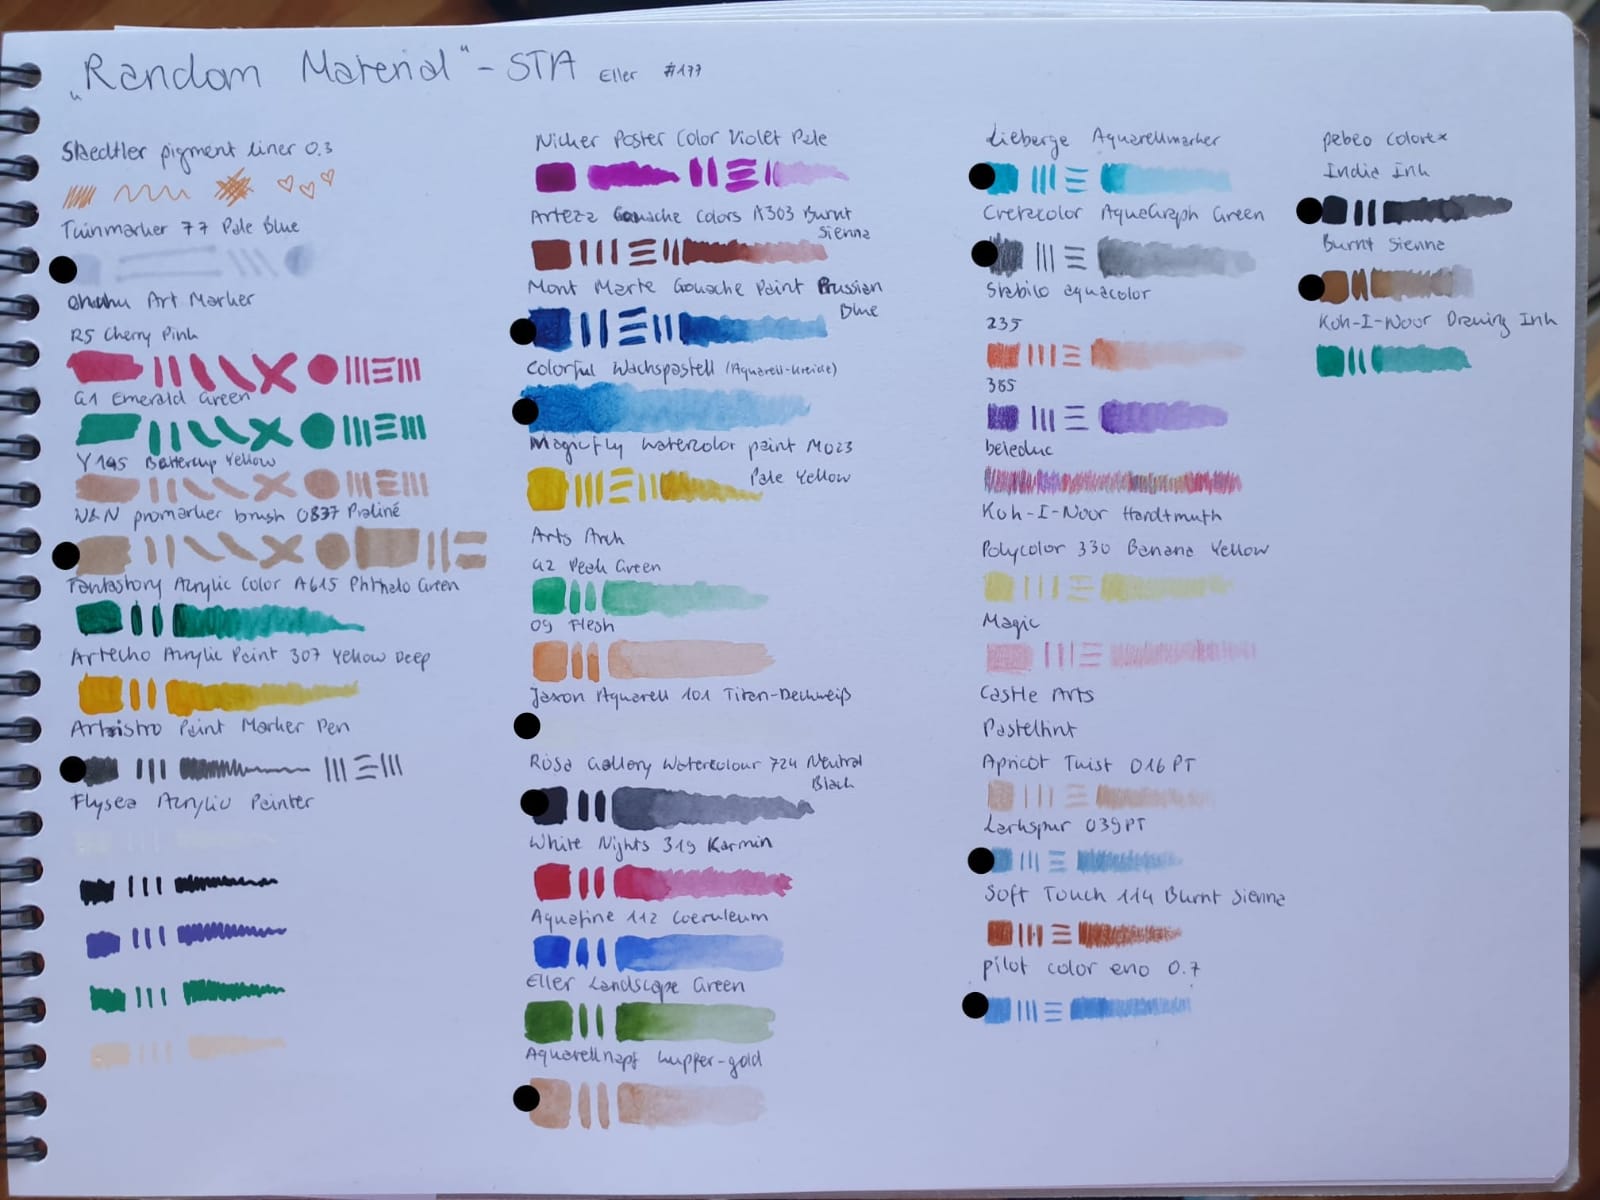 „Random Material" - STA Eller #177
Staedtler pigment liner 0.3
Twinmarker 77 Pale Blue
Ohuhu Art Marker
R5 Cherry Pink
G1 Emerald Green
Y195 Buttercup Yellow
W&N promarker brush O837 Praliné
Fantastory Acrylic Color A615 Phthalo Green
Artecho Acrylic Paint 307 Yellow Deep
Artistro Paint Marker Pen
Flysea Acrylic Painter
Nicker Poster Color Violet Pale
Arteza Gouache Colors A303 Burnt
Sienna
Mont Marte Gouache Paint Prussian
Blue
Colorful Wachspastell (Aquarell-Kreide)
Magicfly Watercolor paint M023
Pale Yellow
Arts Arch
G2 Peak Green
09 Flesh
Jaxon Aquarell 101 Titan-Deckweiß
Rosa Gallery Watercolour 724 Neutral
Black
White Nights 319 Karmin
Aquafine 112 Coeruleum
Eller Landscape Green
Aquarellnapf kupfer-gold
Lieberge Aquarellmarker
Cretacolor AquaGraph Green
Stabilo aquacolor
235
385
beleduc
Koh-I-Noor Hardtmuth
Polycolor 330 Banana Yellow
Magic
Castle Arts
Pasteltint
Apricot Twist 016PT
Larkspur 039PT
Soft Touch 114 Burnt Sienna
pilot color eno 0.7
pebeo colorex
India Ink
Burnt Sienna
Koh-I-Noor Drawing Ink